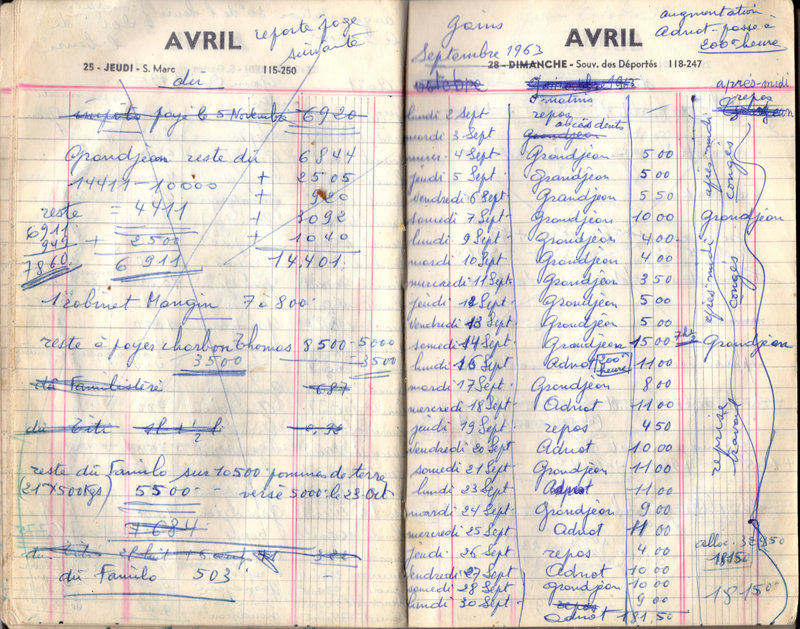 AVRIL
reporte page
suivante
25 - JEUDI - S. Marc 115-250
dû
impôts payé le 5 Novembre 6920
Grandjean reste dû 6844
14411-10000 + 2505
+ 920
reste = 4411 + 3092
6911
949 + 2500 + 1040
7860 6911 14.401
1 robinet Mangin 7 à 800
reste à payer charbon Thomas 8500-5000
3500 3500
dû Familistère 687
dû
reste dû Familo sur 10500 pommes de terre
(21 X 500 Kgs) 5500 - versé 5000 le 23 Oct
+ 684
dû
dû Familo 503
gains
augmentation
Adnot passe à
200 heure
AVRIL
Septembre 1963
28 - DIMANCHE - Souv. des Déportés 118-247
octobre
après-midi
matins
repos
lundi 2 Sept repos
accidents
mardi 3 Sept Grandjean
mercr 4 Sept Grandjean 500
jeudi 5 Sept Grandjean 500
vendredi 6 Sept Grandjean 550
samedi 7 Sept Grandjean 1000 Grandjean
lundi 9 Sept Grandjean 400
mardi 10 Sept Grandjean 400
mercredi 11 Sept Grandjean 350
jeudi 12 Sept Grandjean 500
vendredi 13 Sept Grandjean 500
samedi 14 Sept Grandjean 1500 7h Grandjean
lundi 16 Sept Adnot 200 heure 1100
mardi 17 Sept Grandjean 800
mercredi 18 Sept Adnot 1100
jeudi 19 Sept repos 450
vendredi 20 Sept Adnot 1000
samedi 21 Sept Grandjean 1100
lundi 23 Sept Adnot 1100
mardi 24 Sept Grandjean 900
mercredi 25 Sept Adnot 1100
jeudi 26 Sept repos 400
vendredi 27 Sept Adnot 1000
samedi 28 Sept Grandjean 1000
lundi 30 Sept repos 900
Adnot 18150
après-midi congés
après-midi congés
reprise travail
alloc. 32950
18150
18150